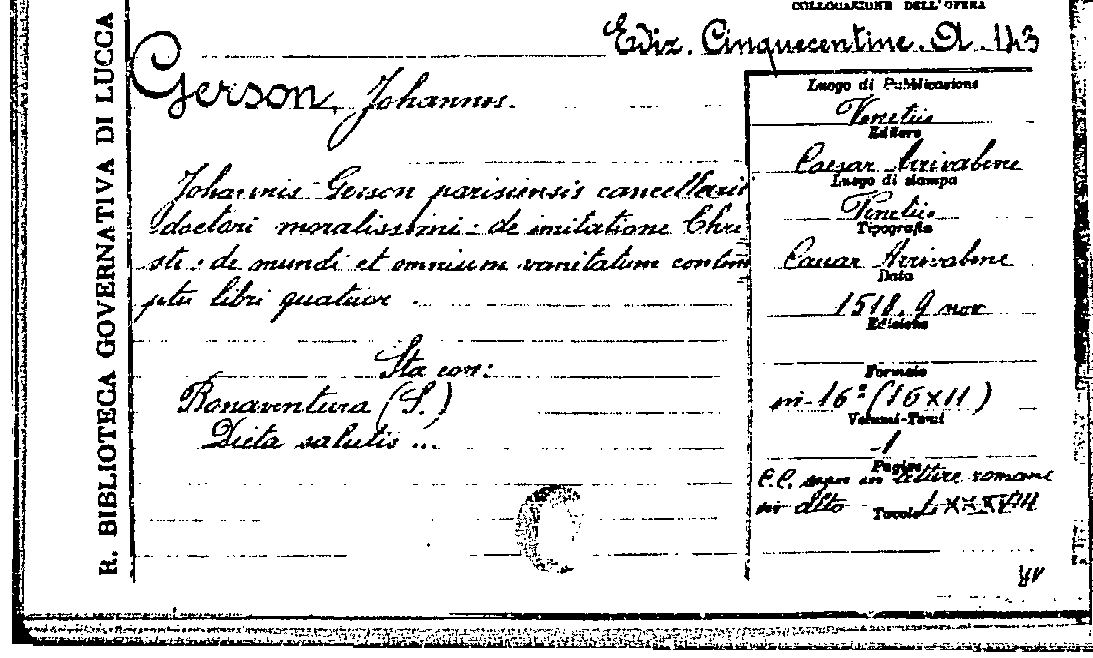 COLLOCAZIONE DELL'OPERA
Ediz. Cinquecentine. A. 143
R. BIBLIOTECA GOVERNATIVA DI LUCCA
Gerson, Johannes.
Johannis Gerson parisiensis cancellarii
doctori moralissimi: de imitatione Chri
sti: de mundi et omnium vanitatum contem
ptu libri quatuor
Sta con:
Bonaventura (S.)
Dieta salutis ...
Luogo di Pubblicazione
Venetiis
Editore
Caesar Arrivabene
Luogo di stampa
Venetiis
Tipografia
Caesar Arrivabene
Data
1518. 9 nov
Edizione
Formato
in-16º (16x11)
Volumi-Tomi
1
Pagine
C.C. in lettere romane
in alto LXXXVIII
Tavole